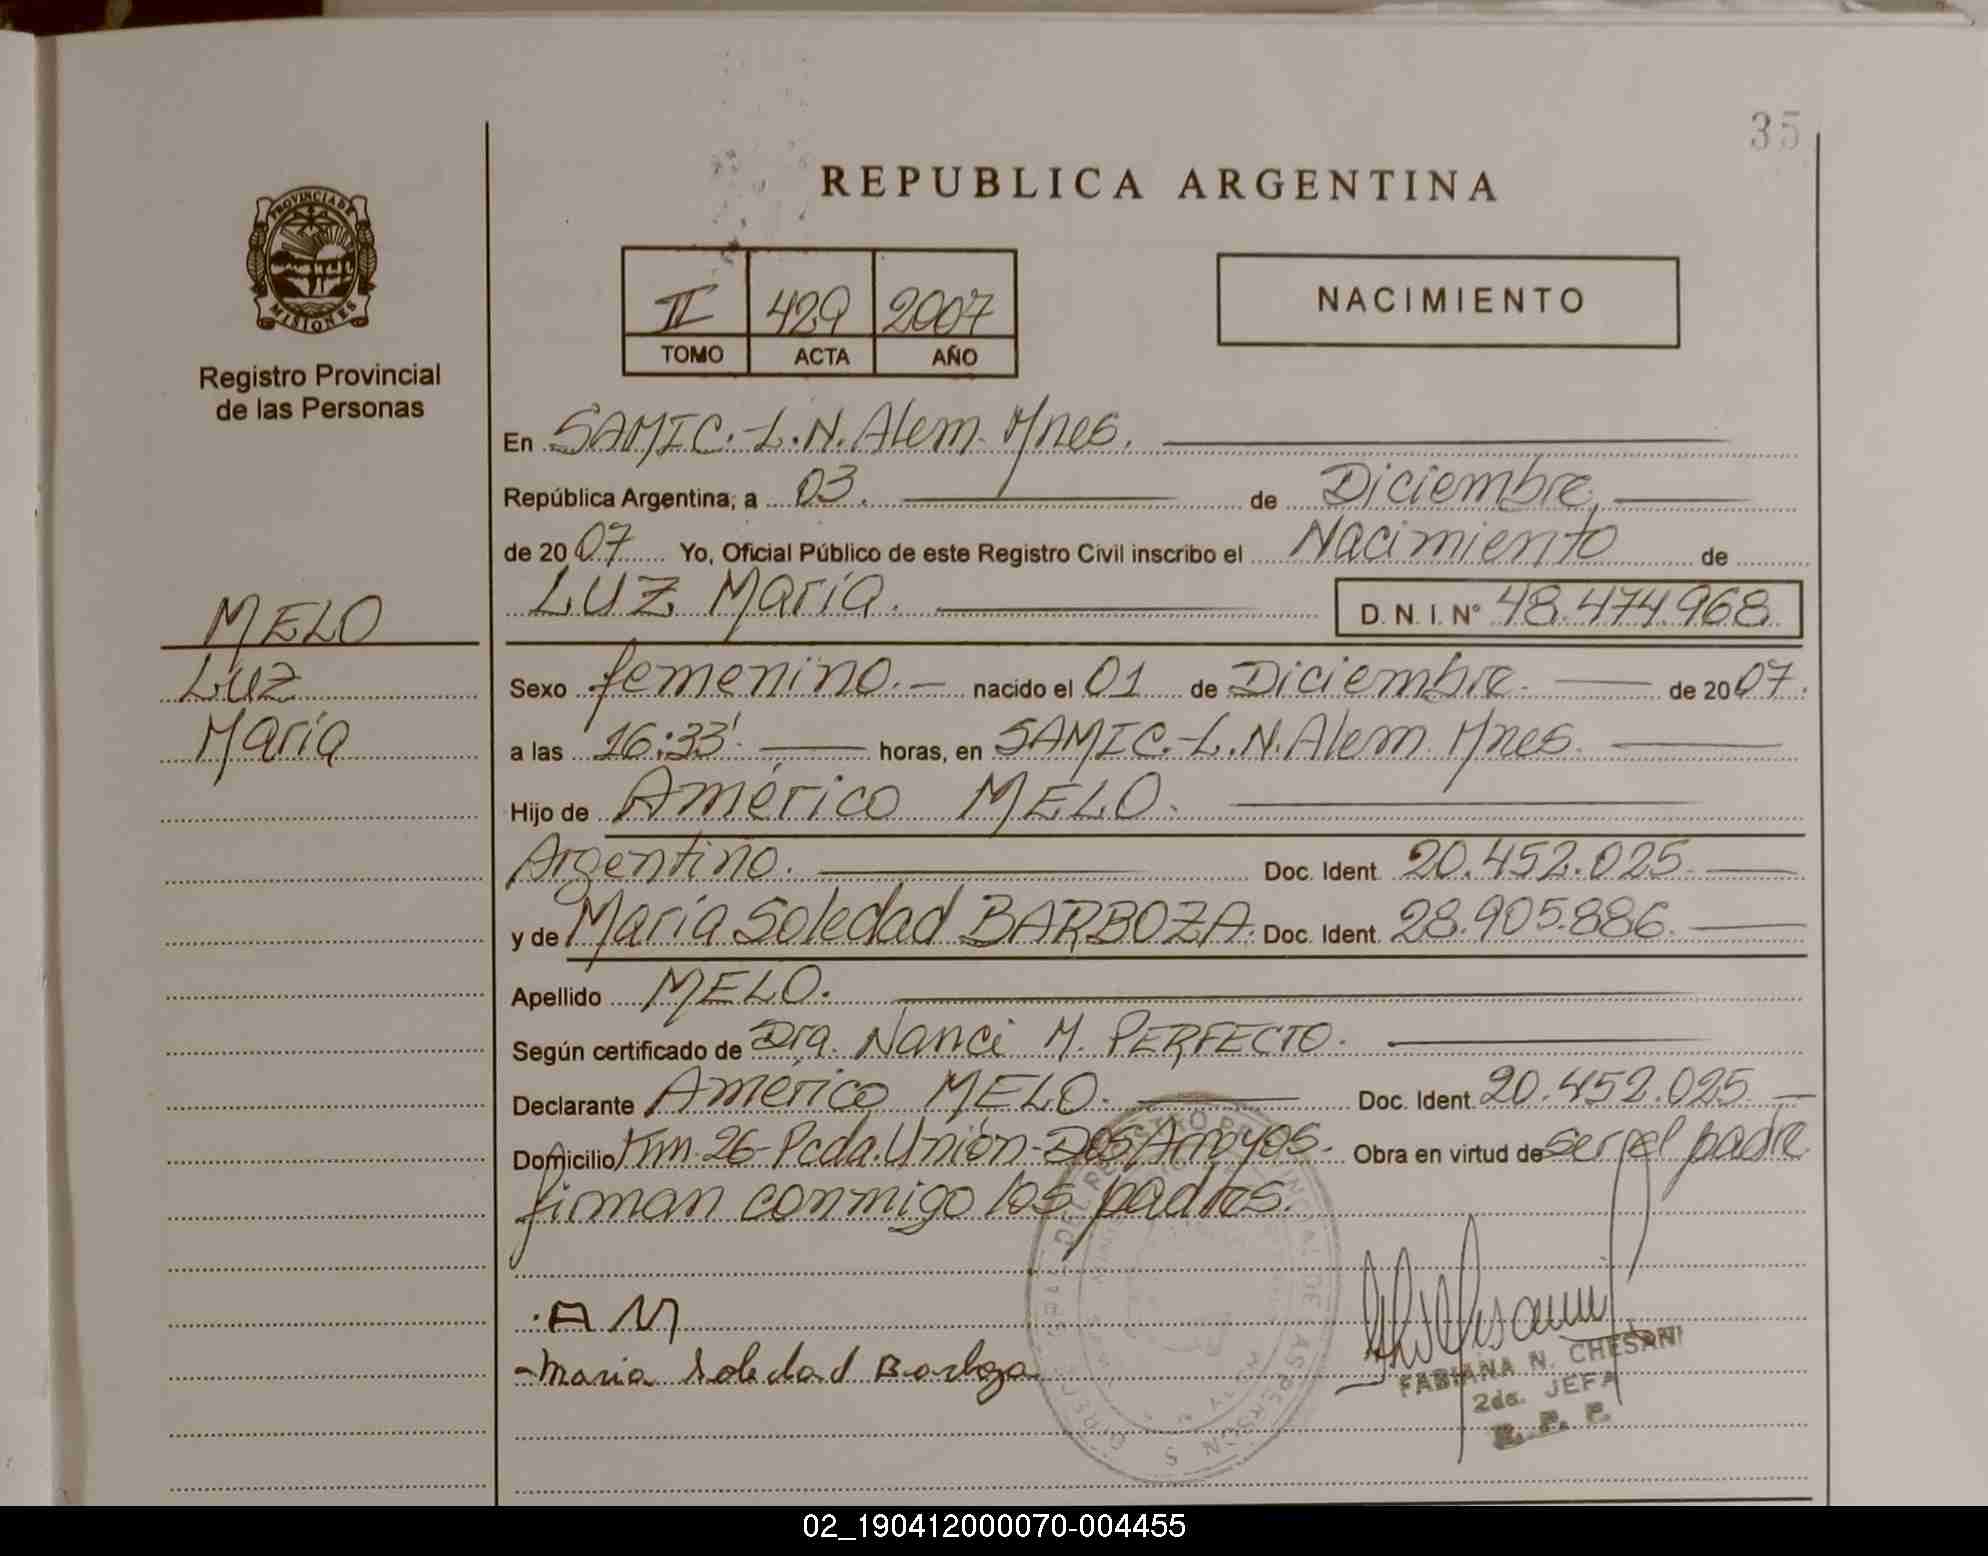 35
REPUBLICA ARGENTINA
PROVINCIA DE
MISIONES
Registro Provincial
de las Personas
II 429 2007
TOMO ACTA AÑO
NACIMIENTO
En SAMIC.-L.N. Alem. Mnes.
República Argentina, a 03. de Diciembre,
de 2007 Yo, Oficial Público de este Registro Civil inscribo el Nacimiento de
LUZ María. D. N. I. N° 48.474.968
MELO
LUZ
María
Sexo femenino.- nacido el 01 de Diciembre. de 2007.
a las 16:33' horas, en SAMIC.-L.N. Alem. Mnes.
Hijo de Américo MELO.
Argentino. Doc. Ident. 20.452.025.
y de María Soledad BARBOZA. Doc. Ident. 28.905.886.
Apellido MELO.
Según certificado de Dra. Nanci M. PERFECTO.
Declarante Américo MELO. Doc. Ident. 20.452.025
Domicilio Km 26-Pcda. Unión-Dos Arroyos. Obra en virtud de ser el padre
firman conmigo los padres.
. A M
-Maria Soledad Barboza
FABIANA N. CHESANI
2da. JEFA
R. P. P.
02_190412000070-004455